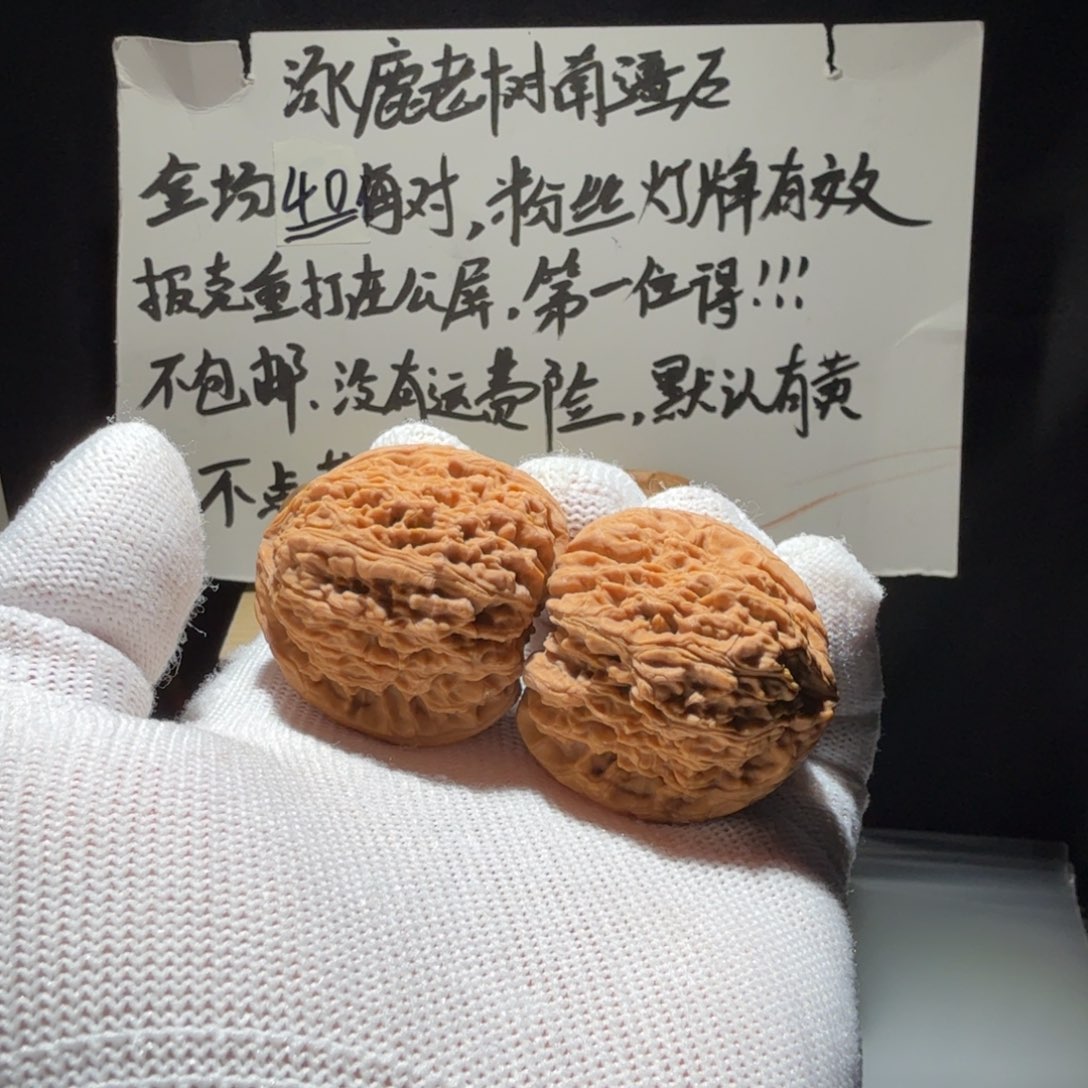 涿鹿老树南疆石
全场40每对,粉丝灯牌有效
报克重打在公屏.第一位得!!!
不包邮.没有运费险,默认有黄
不点